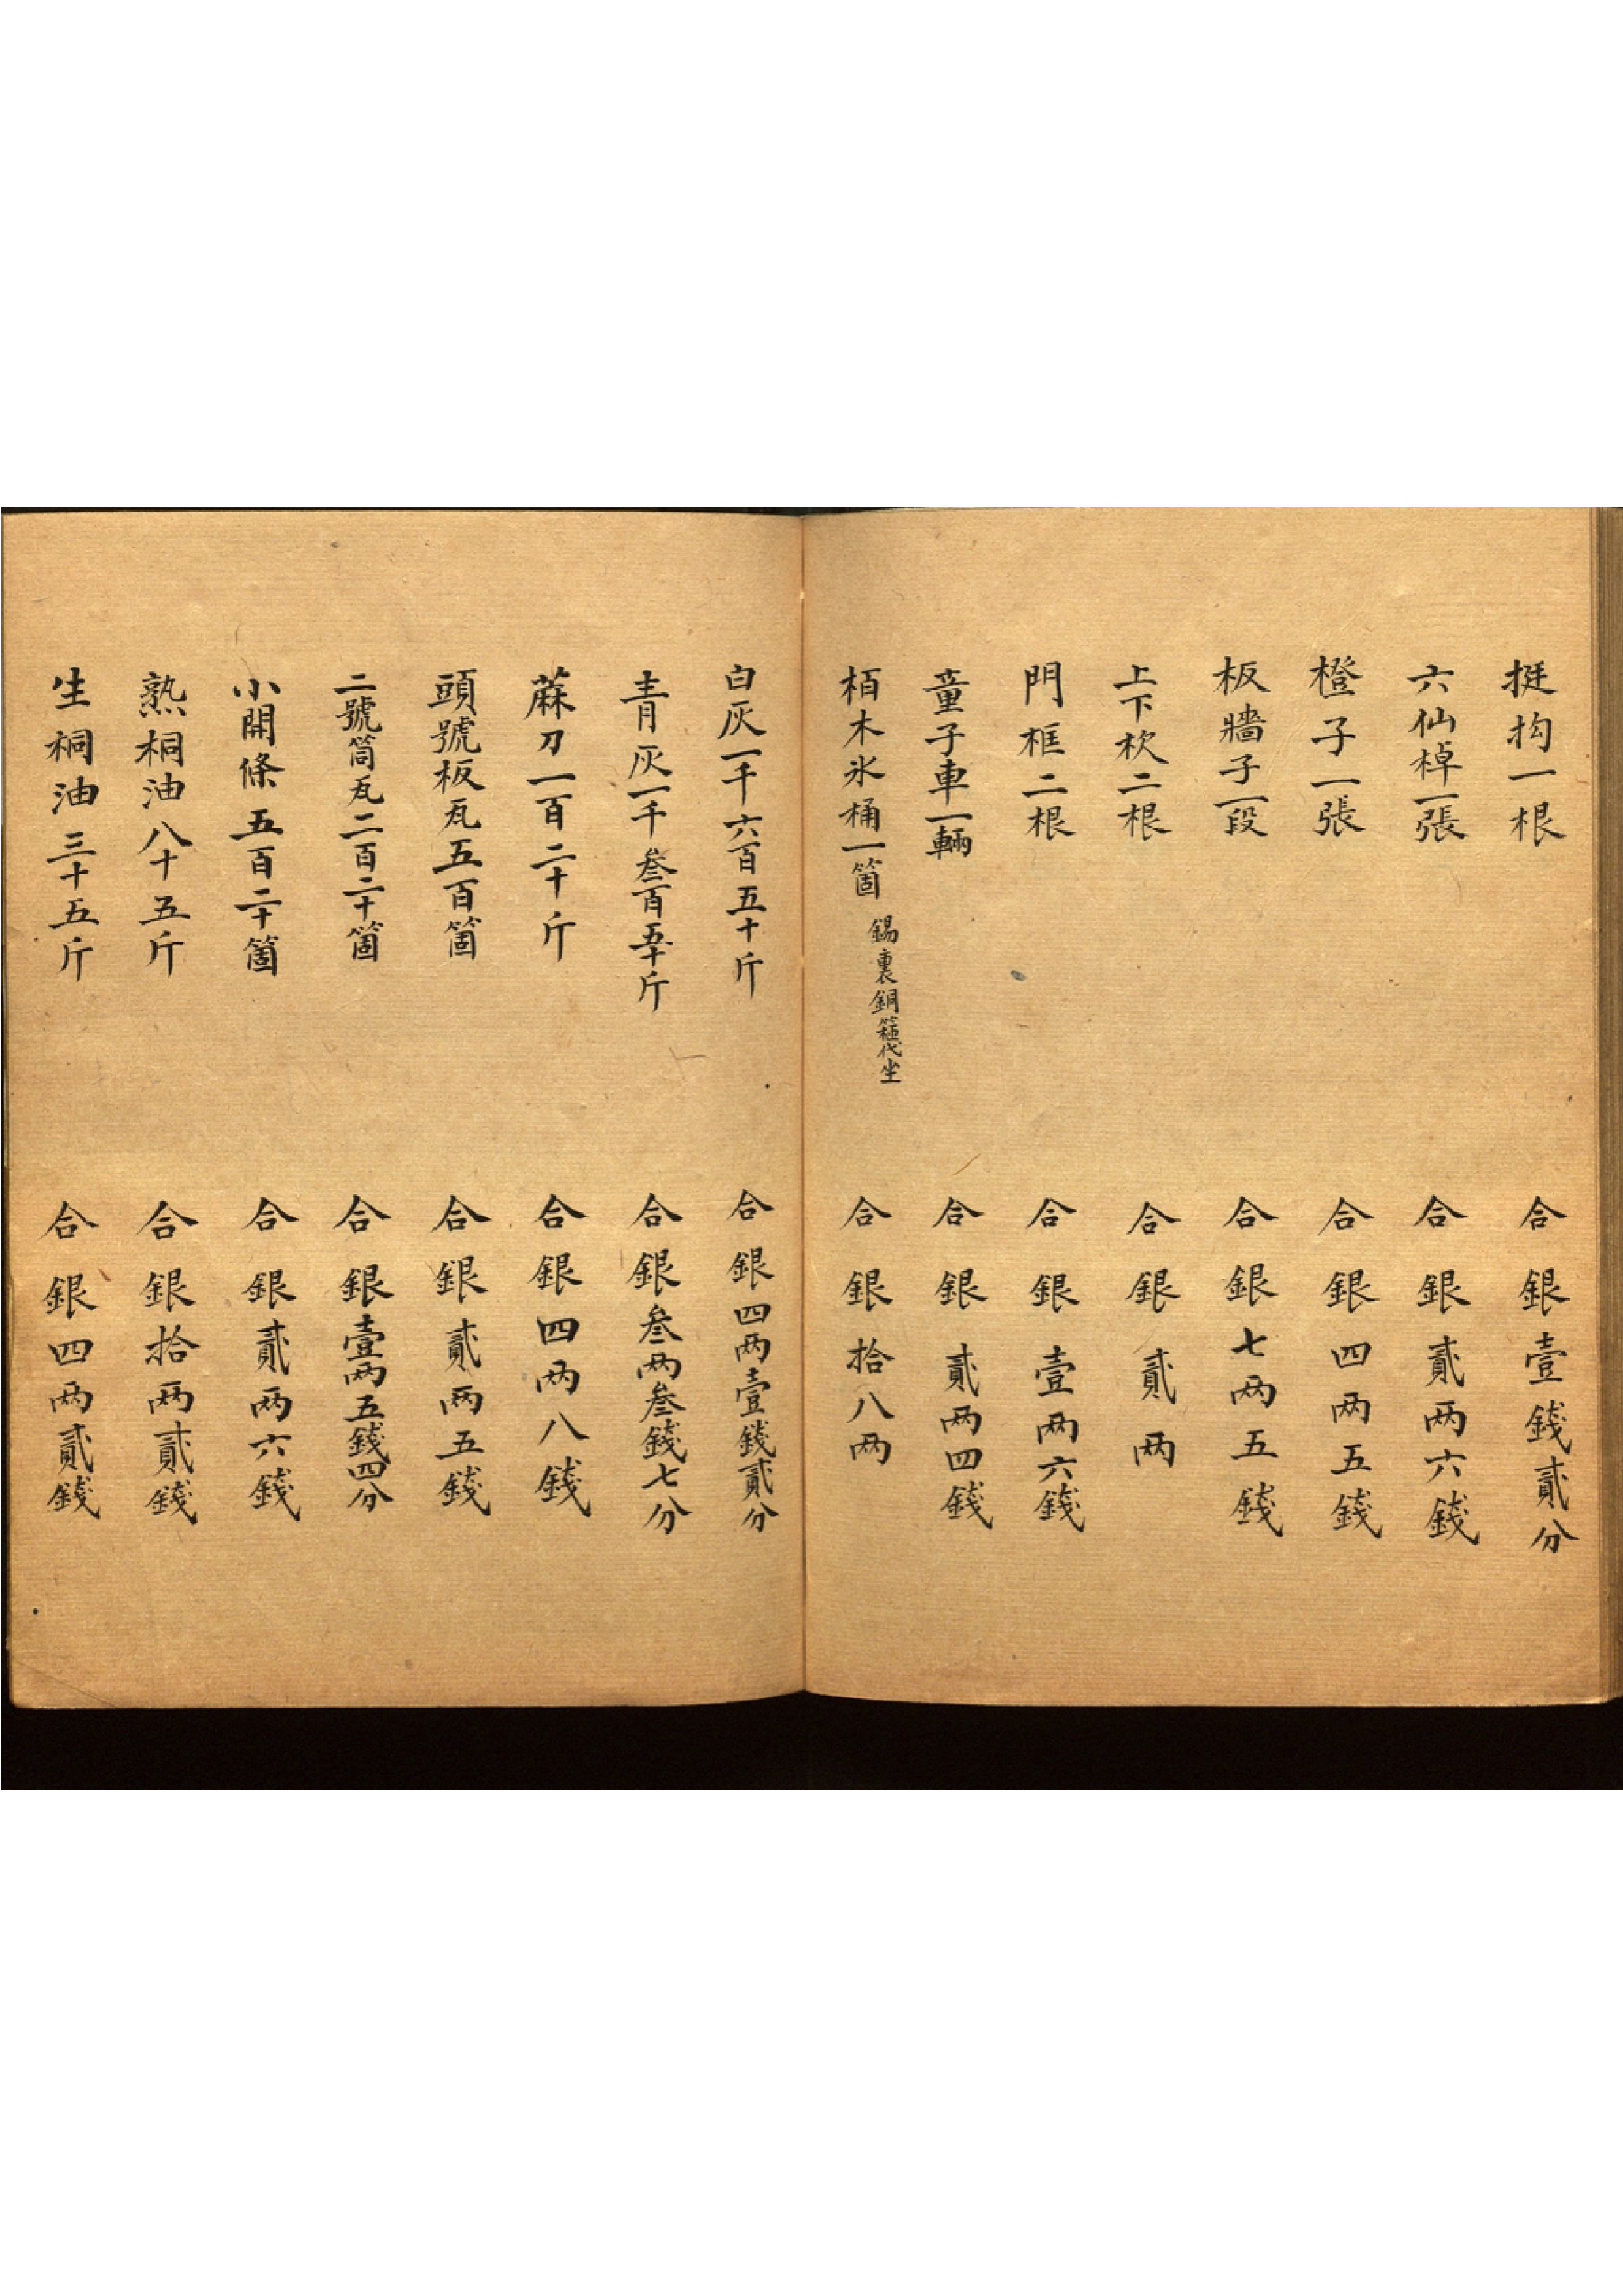 挺扚一根 合銀壹錢貳分
六仙棹一張 合銀貳两六錢
橙子一張 合銀四两五錢
板牆子一段 合銀七两五錢
上下枕二根 合銀貳两
門框二根 合銀壹两六錢
童子車一輛 合銀貳两四錢
栢木氷桶一箇 錫裏銅箍代坐 合銀拾八两
白灰一千六百五十斤 合銀四两壹錢貳分
青灰一千叁百五十斤 合銀叁两叁錢七分
蔴刀一百二十斤 合銀四两八錢
頭號板瓦五百箇 合銀貳两五錢
二號筒瓦二百二十箇 合銀壹两五錢四分
小開條五百二十箇 合銀貳两六錢
熟桐油八十五斤 合銀拾两貳錢
生桐油三十五斤 合銀四两貳錢